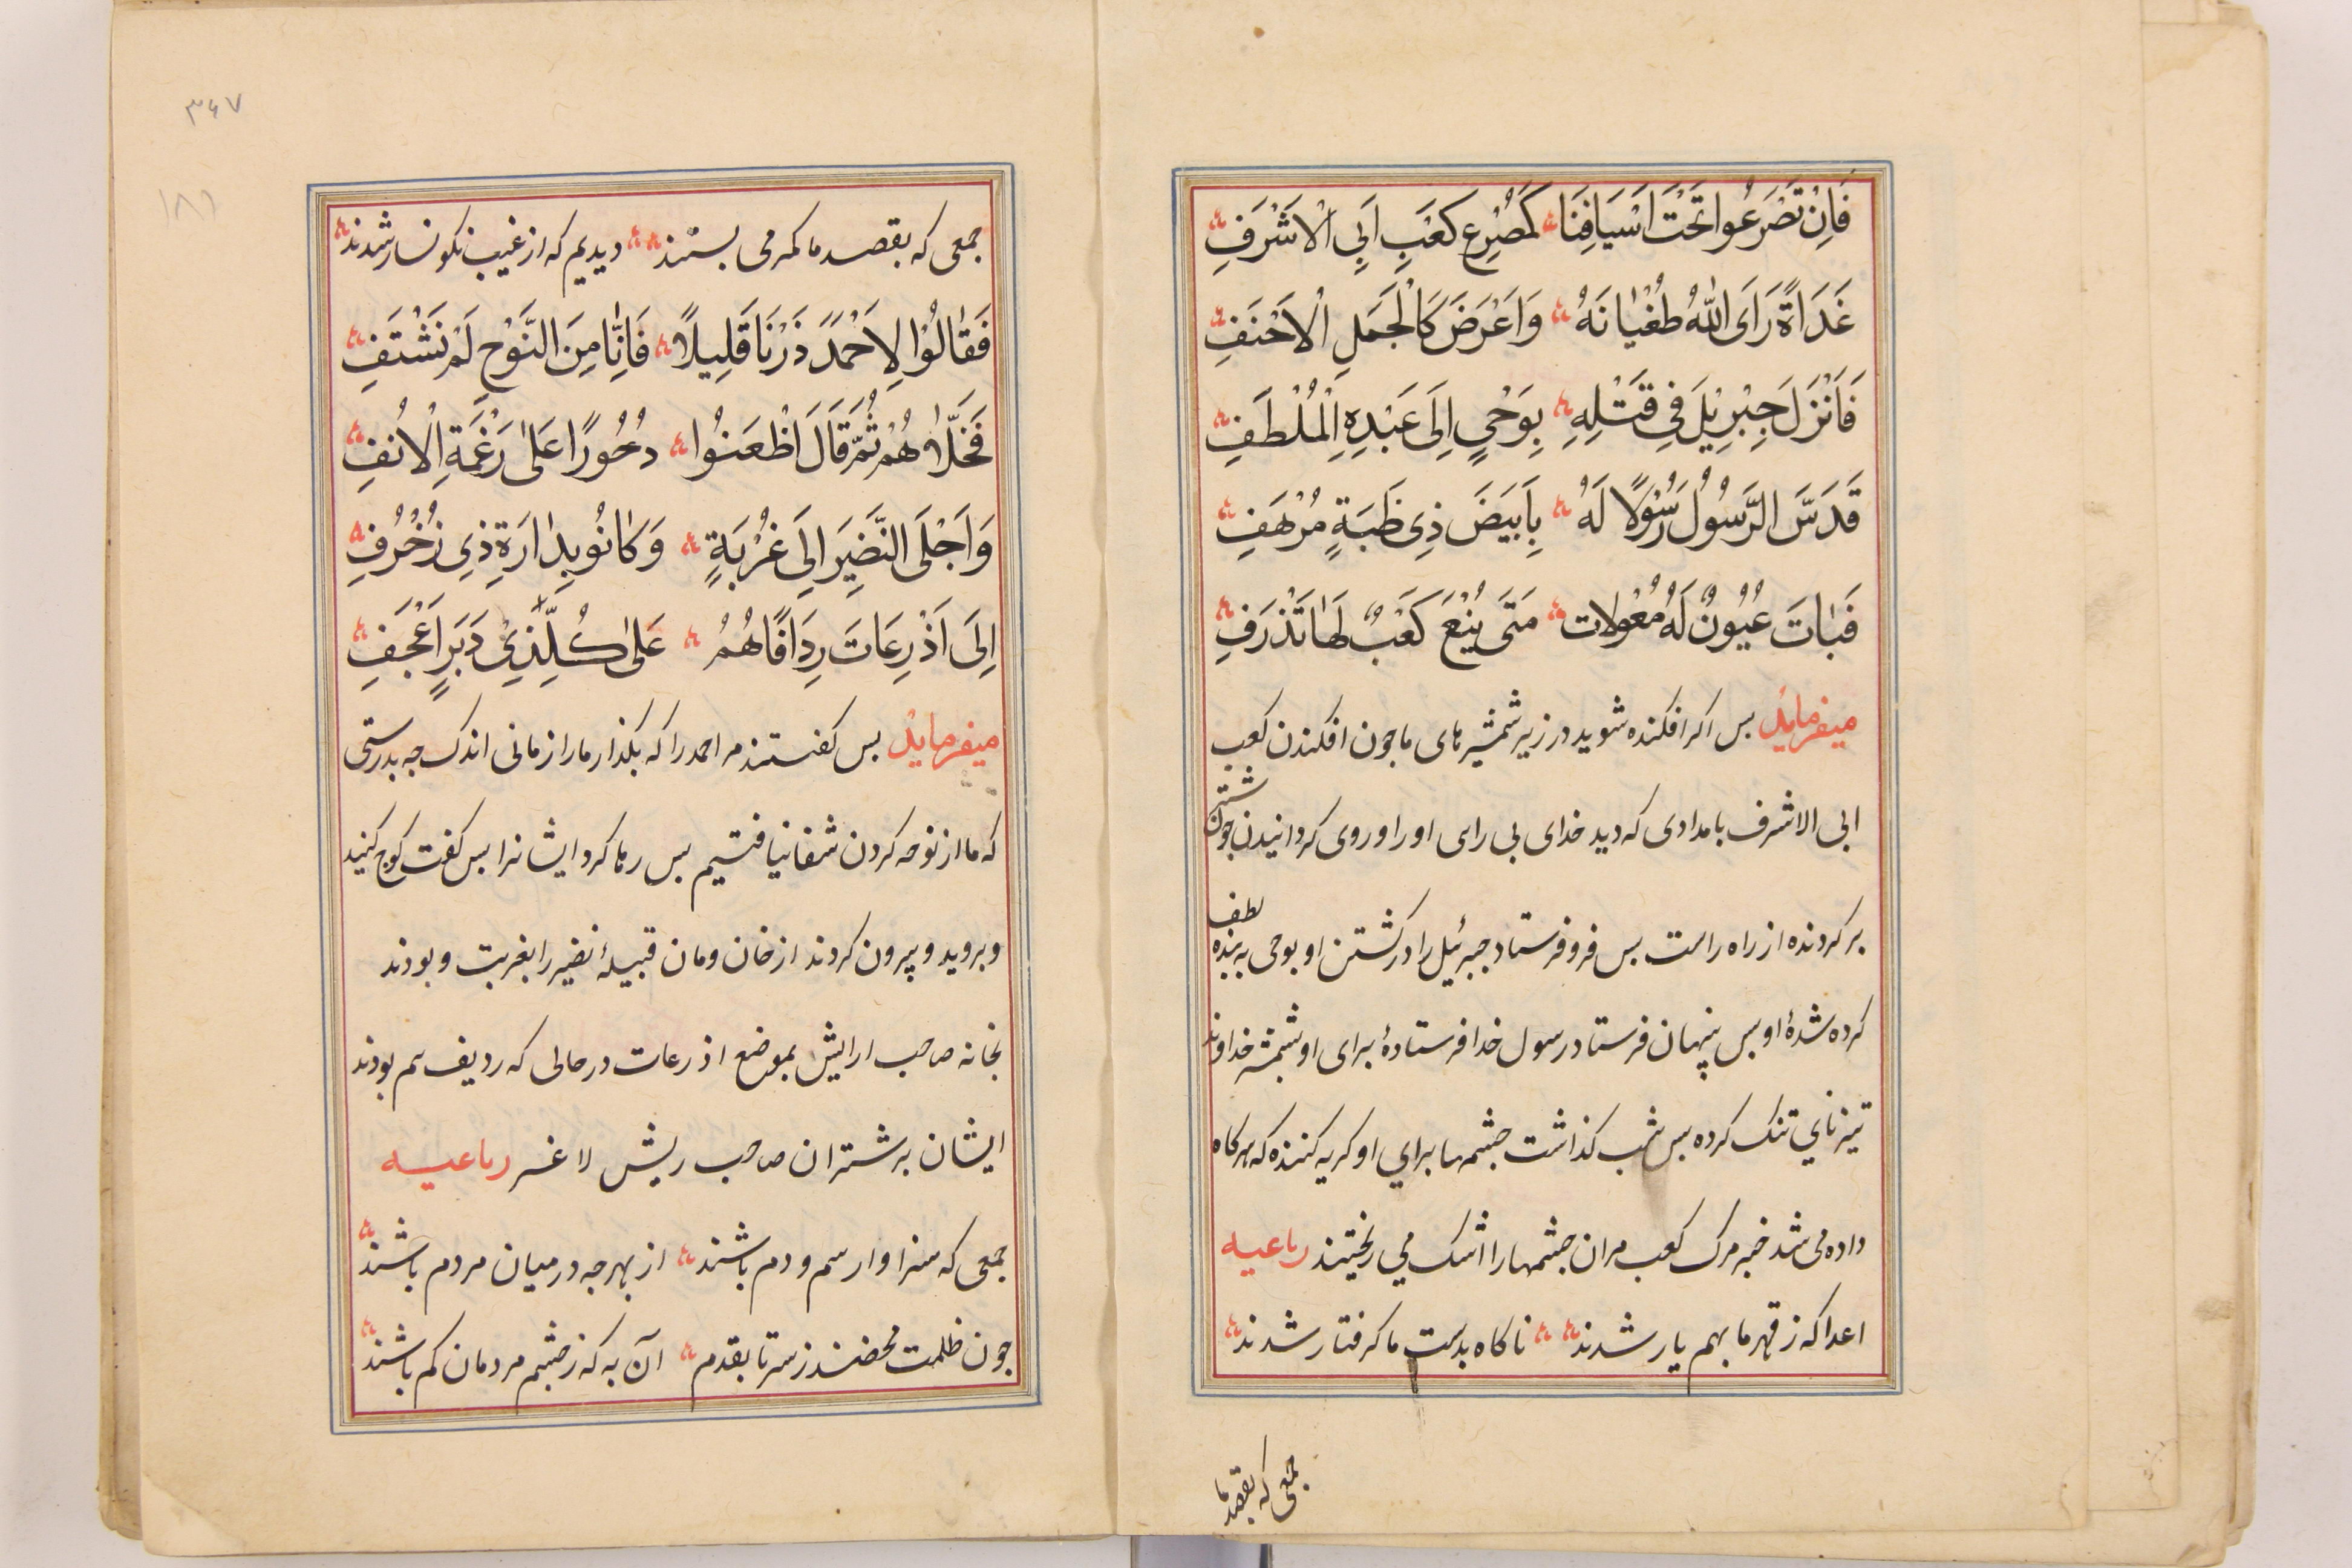 فَاِنْ تَصْرَعُوا تَحْتَ اَسْيَافِنَا كَمَصْرِعِ كَعْبٍ اَبِي الْاَشْرَفِ
غَدَاةَ رَاَى اللّٰهُ طُغْيَانَهُ وَاَعْرَضَ كَالْجَمَلِ الْاَحْنَفِ
فَاَنْزَلَ جِبْرِيْلَ فِي قَتْلِهِ بِوَحْيٍ اِلَى عَبْدِهِ الْمُلْطَفِ
فَدَسَّ الرَّسُولُ رَسُوْلًا لَهُ بِاَبْيَضَ ذِي ظَبَةٍ مُرْهَفِ
فَبَاتَ عُيُونٌ لَهُ مُعْوِلات مَتَى يُنْعَ كَعْبٌ لَهَا تَذْرَفِ
میفرماید بس اکر افکنده شوید در زیر شمشیرهای ما جون افکندن کعب
ابی الاشرف بامدادی که دید خدای بی راهی او را و روی کردانیدن جون شتر
بر کردنده از راه راست بس فرو فرستاد جبرئیل را در کشتن او بوحی به بنده لطف
کرده شدهٔ او بس پنهان فرستاد رسول خدا فرستادهٔ برای او بشمشیر خداوند
تیزنای تنک کرده بس شب کذاشت جشمها برای او کریه کننده که هرکاه
داده می شد خبر مرک کعب مران جشمها را اشک می ریختند رباعیه
اعدا که ز قهر ما بهم یار شدند ناکاه بدست ما کرفتار شدند
جمعی که بقصد ما
۳۶۷
۱۸۱
جمعی که بقصد ما کمر می بستند دیدیم که از غیب نکونسار شدند
فَقَالُوْا لِاَحْمَدَ ذَرْنَا قَلِيلًا فَاِنَّا مِنَ النَّوْحِ لَمْ نَشْتَفِ
فَخَلَّاهُمْ ثُمَّ قَالَ اظْعَنُوا دُحُورًا عَلٰى رَغْمَةِ الْاُنُفِ
وَاَجْلَى النَّضِيرَ اِلَى غُرْبَةٍ وَكَانُوا بِدَارَةِ ذِي زُخْرُفِ
اِلَى اَذْرِعَاتَ رِدَافًا هُمُ عَلٰى كُلِّ ذِي دَبَرٍ اَعْجَفِ
میفرماید بس کفتند مر احمد را که بکذار ما را زمانی اندک جه بدرستی
که ما از نوحه کردن شفا نیافتیم بس رها کرد ایشانرا بس کفت کوج کنید
و بروید و بیرون کردند از خان ومان قبیلهٔ نضیر را بغربت و بودند
بخانه صاحب ارایش بموضع اذرعات در حالی که ردیف هم بودند
ایشان بر شتران صاحب ریش لاغر رباعیه
جمعی که سزاوار سم و دم باشند از بهر جه در میان مردم باشند
جون ظلمت محضند ز سر تا بقدم آن به که ز جشم مردمان کم باشند